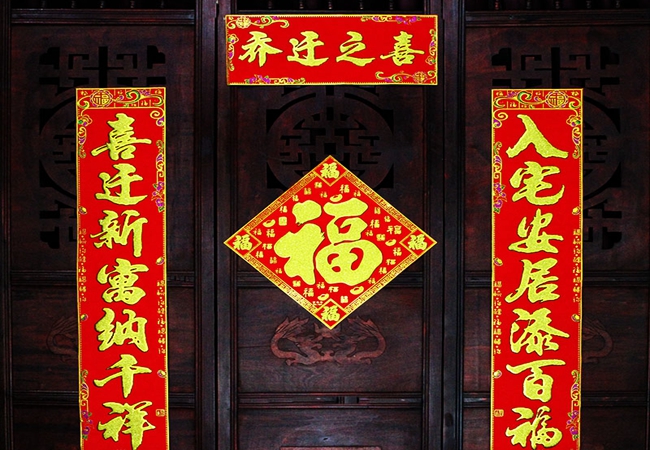 乔迁之喜
入宅安居添百福
喜迁新寓纳千祥
福